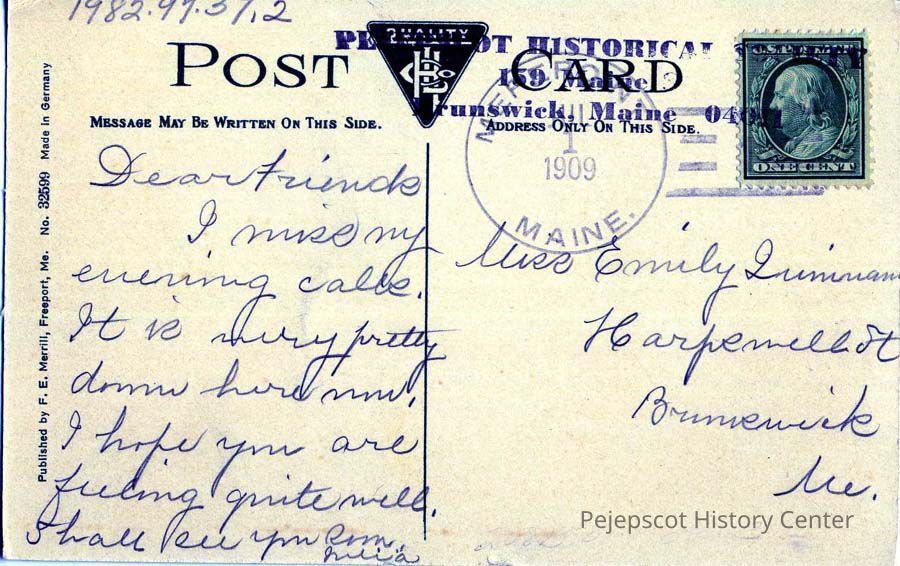 1982.97.37.2
POST CARD
QUALITY
HISTORICAL
159 Maine
Brunswick, Maine 04011
MESSAGE MAY BE WRITTEN ON THIS SIDE.
ADDRESS ONLY ON THIS SIDE.
1
1909
MAINE.
ONE CENT
Published by F. E. Merrill, Freeport, Me. No. 32599 Made in Germany
Dear Friends
I miss my
evening calls.
It is very pretty
down here now.
I hope you are
feeling quite well.
Shall see you soon.
Miss Emily
Harpswell St
Brunswick
Me.
Pejepscot History Center